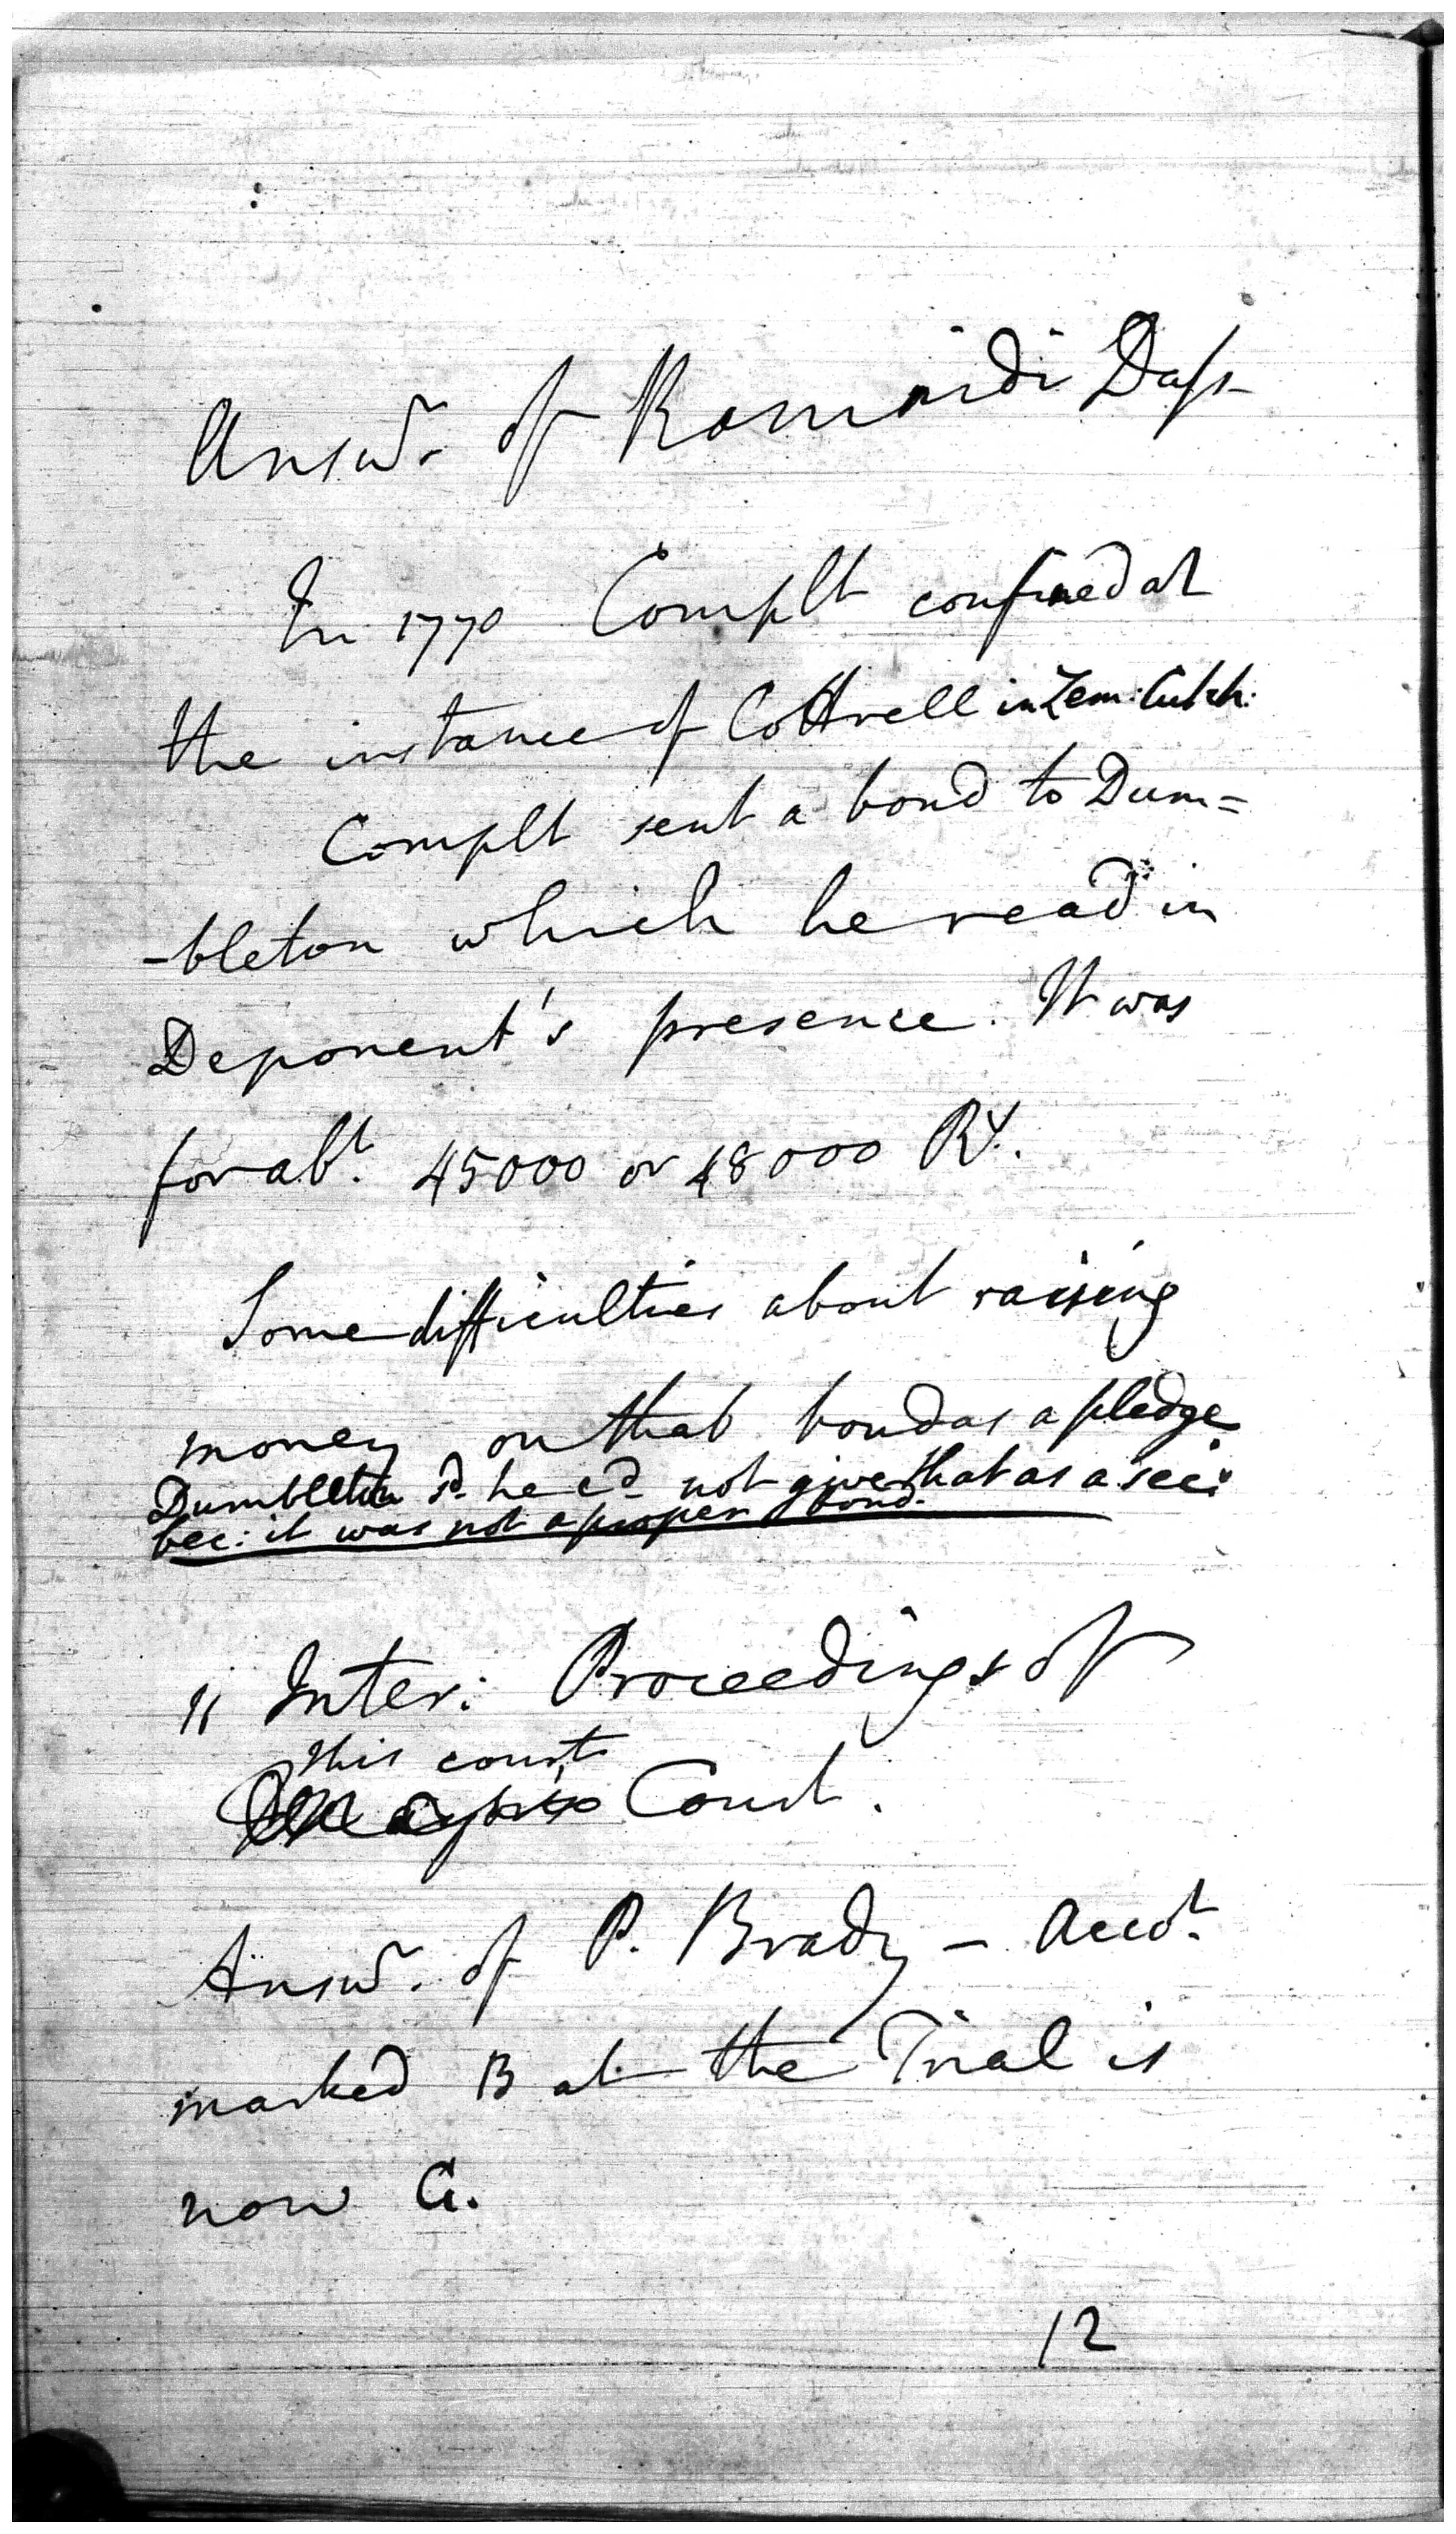 Answr. of Ramnidi Dass
In 1770 Complt confined at
the instance of Cottrell in Zem: Cutch:
Complt sent a bond to Dum=
-bleton which he read in
Deponent's presence. It was
for abt. 45000 or 48000 Rs.
Some difficulties about raising
money on that bond as a pledge
Dumbleton sd. he cd not give that as a sec:
bec: it was not a proper bond.
11 Inter: Proceedings of
this court
Court.
Answr. of P. Brady - Accot.
marked B at the Trial is
now G.
12